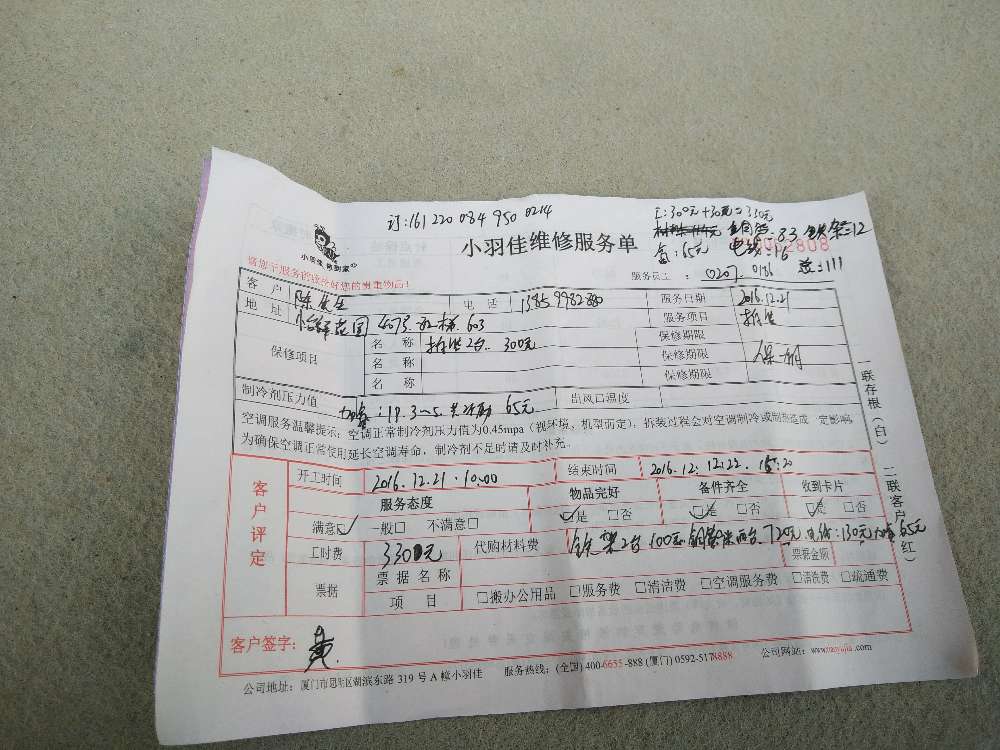 订:161 220 084 950 0214
工:300元+30元=330元
83 铁架=12
氟:65元 电线=16
小羽佳 做到家
小羽佳维修服务单
服务员工: 0207 0186 =111
客户 陈先生 电话 服务日期 2016.12.21
地址 603 服务项目
保修项目 名称 2台 300元 保修期限
名称 保修期限
名称 保修期限
制冷剂压力值 65元 出风口温度
空调服务温馨提示:空调正常制冷剂压力值为0.45mpa(视环境,机型而定),拆装过程会对空调制冷或制热造成一定影响,
为确保空调正常使用延长空调寿命,制冷剂不足时请及时补充。
一联存根(白) 二联客户(红)
客户评定
开工时间 2016.12.21.10:00 结束时间 2016.12.12.22. 15:20
服务态度 物品完好 备件齐全 收到卡片
满意☑ 一般□ 不满意□ ☑是 □否 ☑是 □否 ☑是 □否
工时费 3300元 代购材料费 铁架2台100元 720元 130元 65元
票据 票据名称 票据金额
项目 □搬办公用品 □服务费 □清洁费 □空调服务费 □清洗费 □疏通费
客户签字: 黄
公司地址:厦门市思明区湖滨东路319号A幢小羽佳 服务热线:(全国)400-6655-888 (厦门)0592-5178888 公司网站: